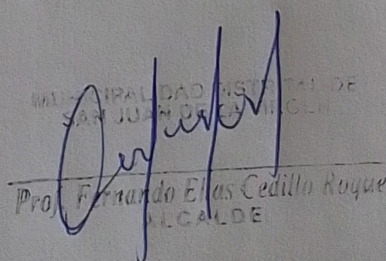 MUNICIPALIDAD DISTRITAL DE
SAN JUAN DE
Prof. Fernando Elías Cedillo Roque
ALCALDE